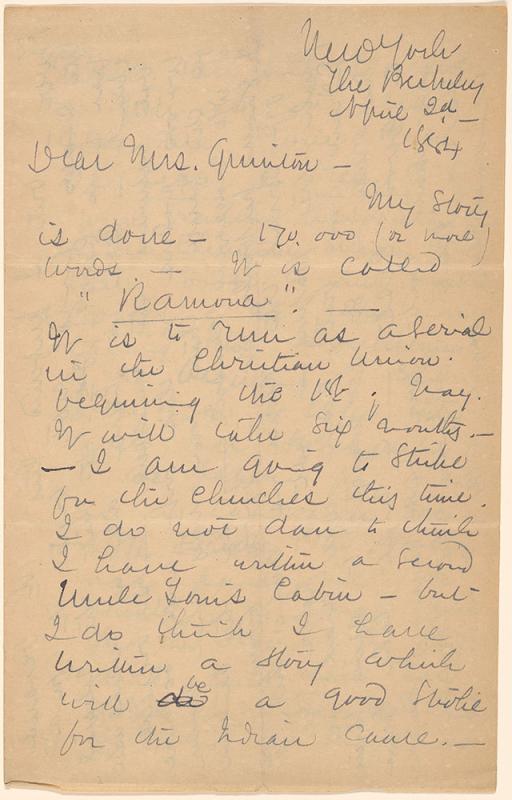 New York
The Berkeley
April 2d —
1884
Dear Mrs. Quinton —
My story
is done — 170,000 (or more)
words — It is called
"Ramona". —
It is to run as a serial
in the Christian Union.
beginning the 1st, May.
It will take six months. —
— I am going to strike
for the churches this time.
I do not dare to think
I have written a second
Uncle Tom's Cabin — but
I do think I have
written a story which
will be a good stroke
for the Indian cause. —